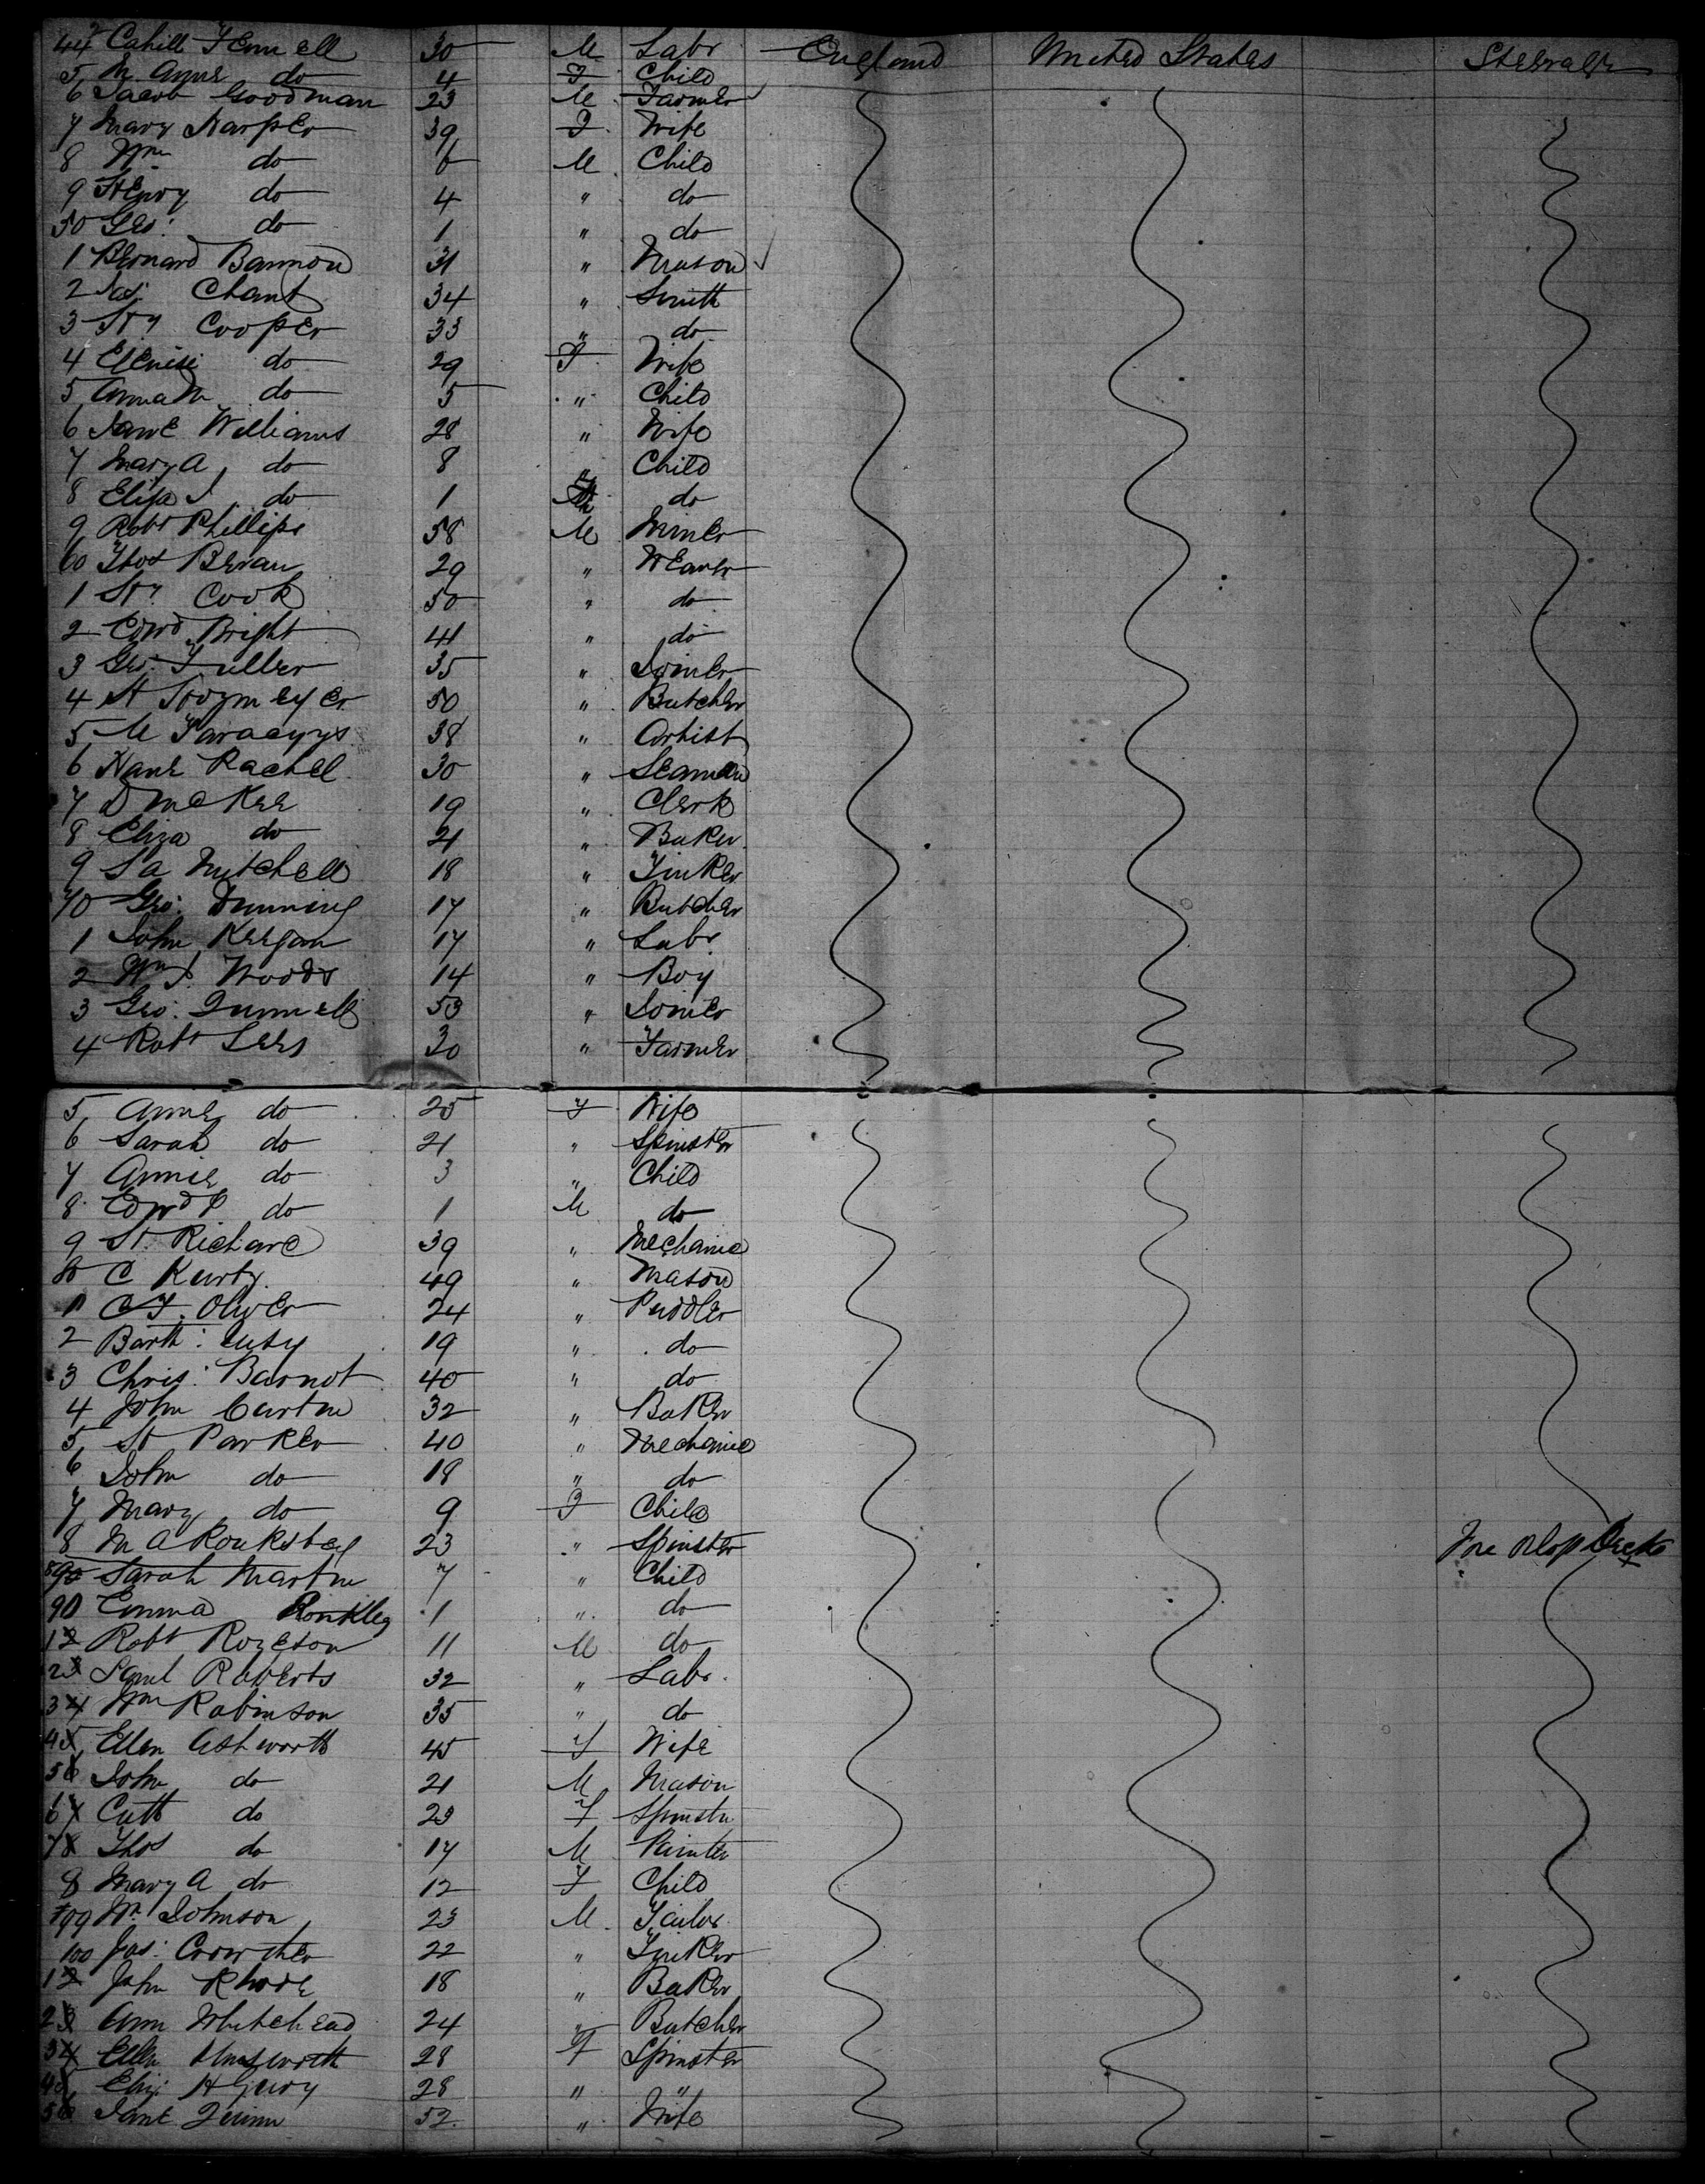 44 Cahill Fennell 30 M Labr England United States Steerage
5 M. Anne do 4 F Child
6 Jacob Goodman 23 M Farmer
7 Mary Harper 39 F Wife
8 Wm do 6 M Child
9 Henry do 4 " do
50 Geo: do 1 " do
1 Bernard Bannon 31 " Mason
2 Jas: Chant 34 " Smith
3 Hy Cooper 33 " do
4 do 29 F Wife
5 Anna M do 5 " Child
6 Jane Williams 28 " Wife
7 Mary A do 8 " Child
8 Eliza J do 1 do
9 Robt Phillips 58 M Miner
60 Thos Bevan 29 " Weaver
1 Hy Cook 50 " do
2 Edwd Bright 41 " do
3 Geo: Fuller 35 " Joiner
4 H 50 " Butcher
5 M 38 " Artist
6 Hane Rachel 30 " Seaman
7 D McKee 19 " Clerk
8 Eliza do 21 " Baker
9 S A Mitchell 18 " Tinker
70 Geo: Dunning 17 " Butcher
1 John Keegan 17 " Labr
2 Wm J. Woods 14 " Boy
3 Geo: 53 " Joiner
4 Robt Lees 30 " Farmer
5 Anne do 25 F Wife
6 Sarah do 21 " Spinster
7 Annie do 3 " Child
8 Edwd P do 1 M do
9 H. Richard 39 " Mechanic
80 C Kurtz 49 " Mason
1 C F. Oliver 24 " Puddler
2 Barth: 19 " do
3 Chris: Barnot 40 " do
4 John Curtin 32 " Baker
5 H Parker 40 " Mechanic
6 John do 18 " do
7 Mary do 9 F Child
8 M A Rouksbey 23 " Spinster Fore Orlop Deck
90 Sarah Martin 7 " Child
90 Emma Ronkley 1 " do
1 Robt Royston 11 M do
2 Saml Roberts 32 " Labr.
3 Wm Robinson 35 " do
4 Ellen Ashworth 45 F Wife
5 John do 21 M Mason
6 Cath do 23 F Spinster
7 Thos do 17 M Painter
8 Mary A do 12 F Child
99 Wm Johnson 23 M Tailor
100 Jas: Crowther 22 " Tinker
1 John Rhode 18 " Baker
2 Ann Whitehead 24 " Butcher
3 Ellen 28 F Spinster
4 Eliz: Henry 28 " "
5 Jane Quinn 52 " Wife